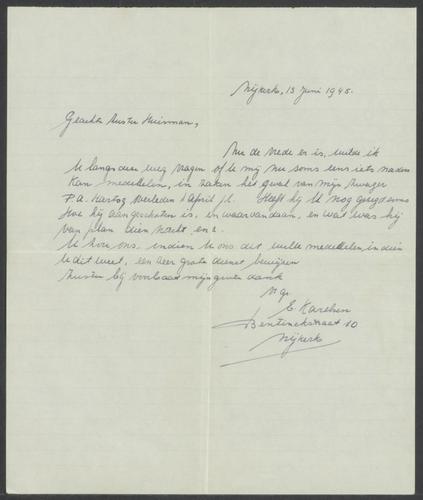 Nijkerk, 13 Juni 1945.
Geachte Zuster Huisman,
Nu de vrede er is, wilde ik
U langs deze weg vragen of U mij nu soms iets nader
kan mededeelen, in zake het geval van mijn zwager
P.A. Hartog overleden 1 April j.l. Heeft hij U nog gezegd
Hoe hij aangeschoten is, en waar vandaan, en wat was hij
van plan dien nacht, enz.
U zou ons, indien U ons dit wilde mededeelen indien
U dit weet, een zeer grote dienst bewijzen
Zuster bij voorbaat mijn dank
E. Karssen
Bentinckstraat 10
Nijkerk